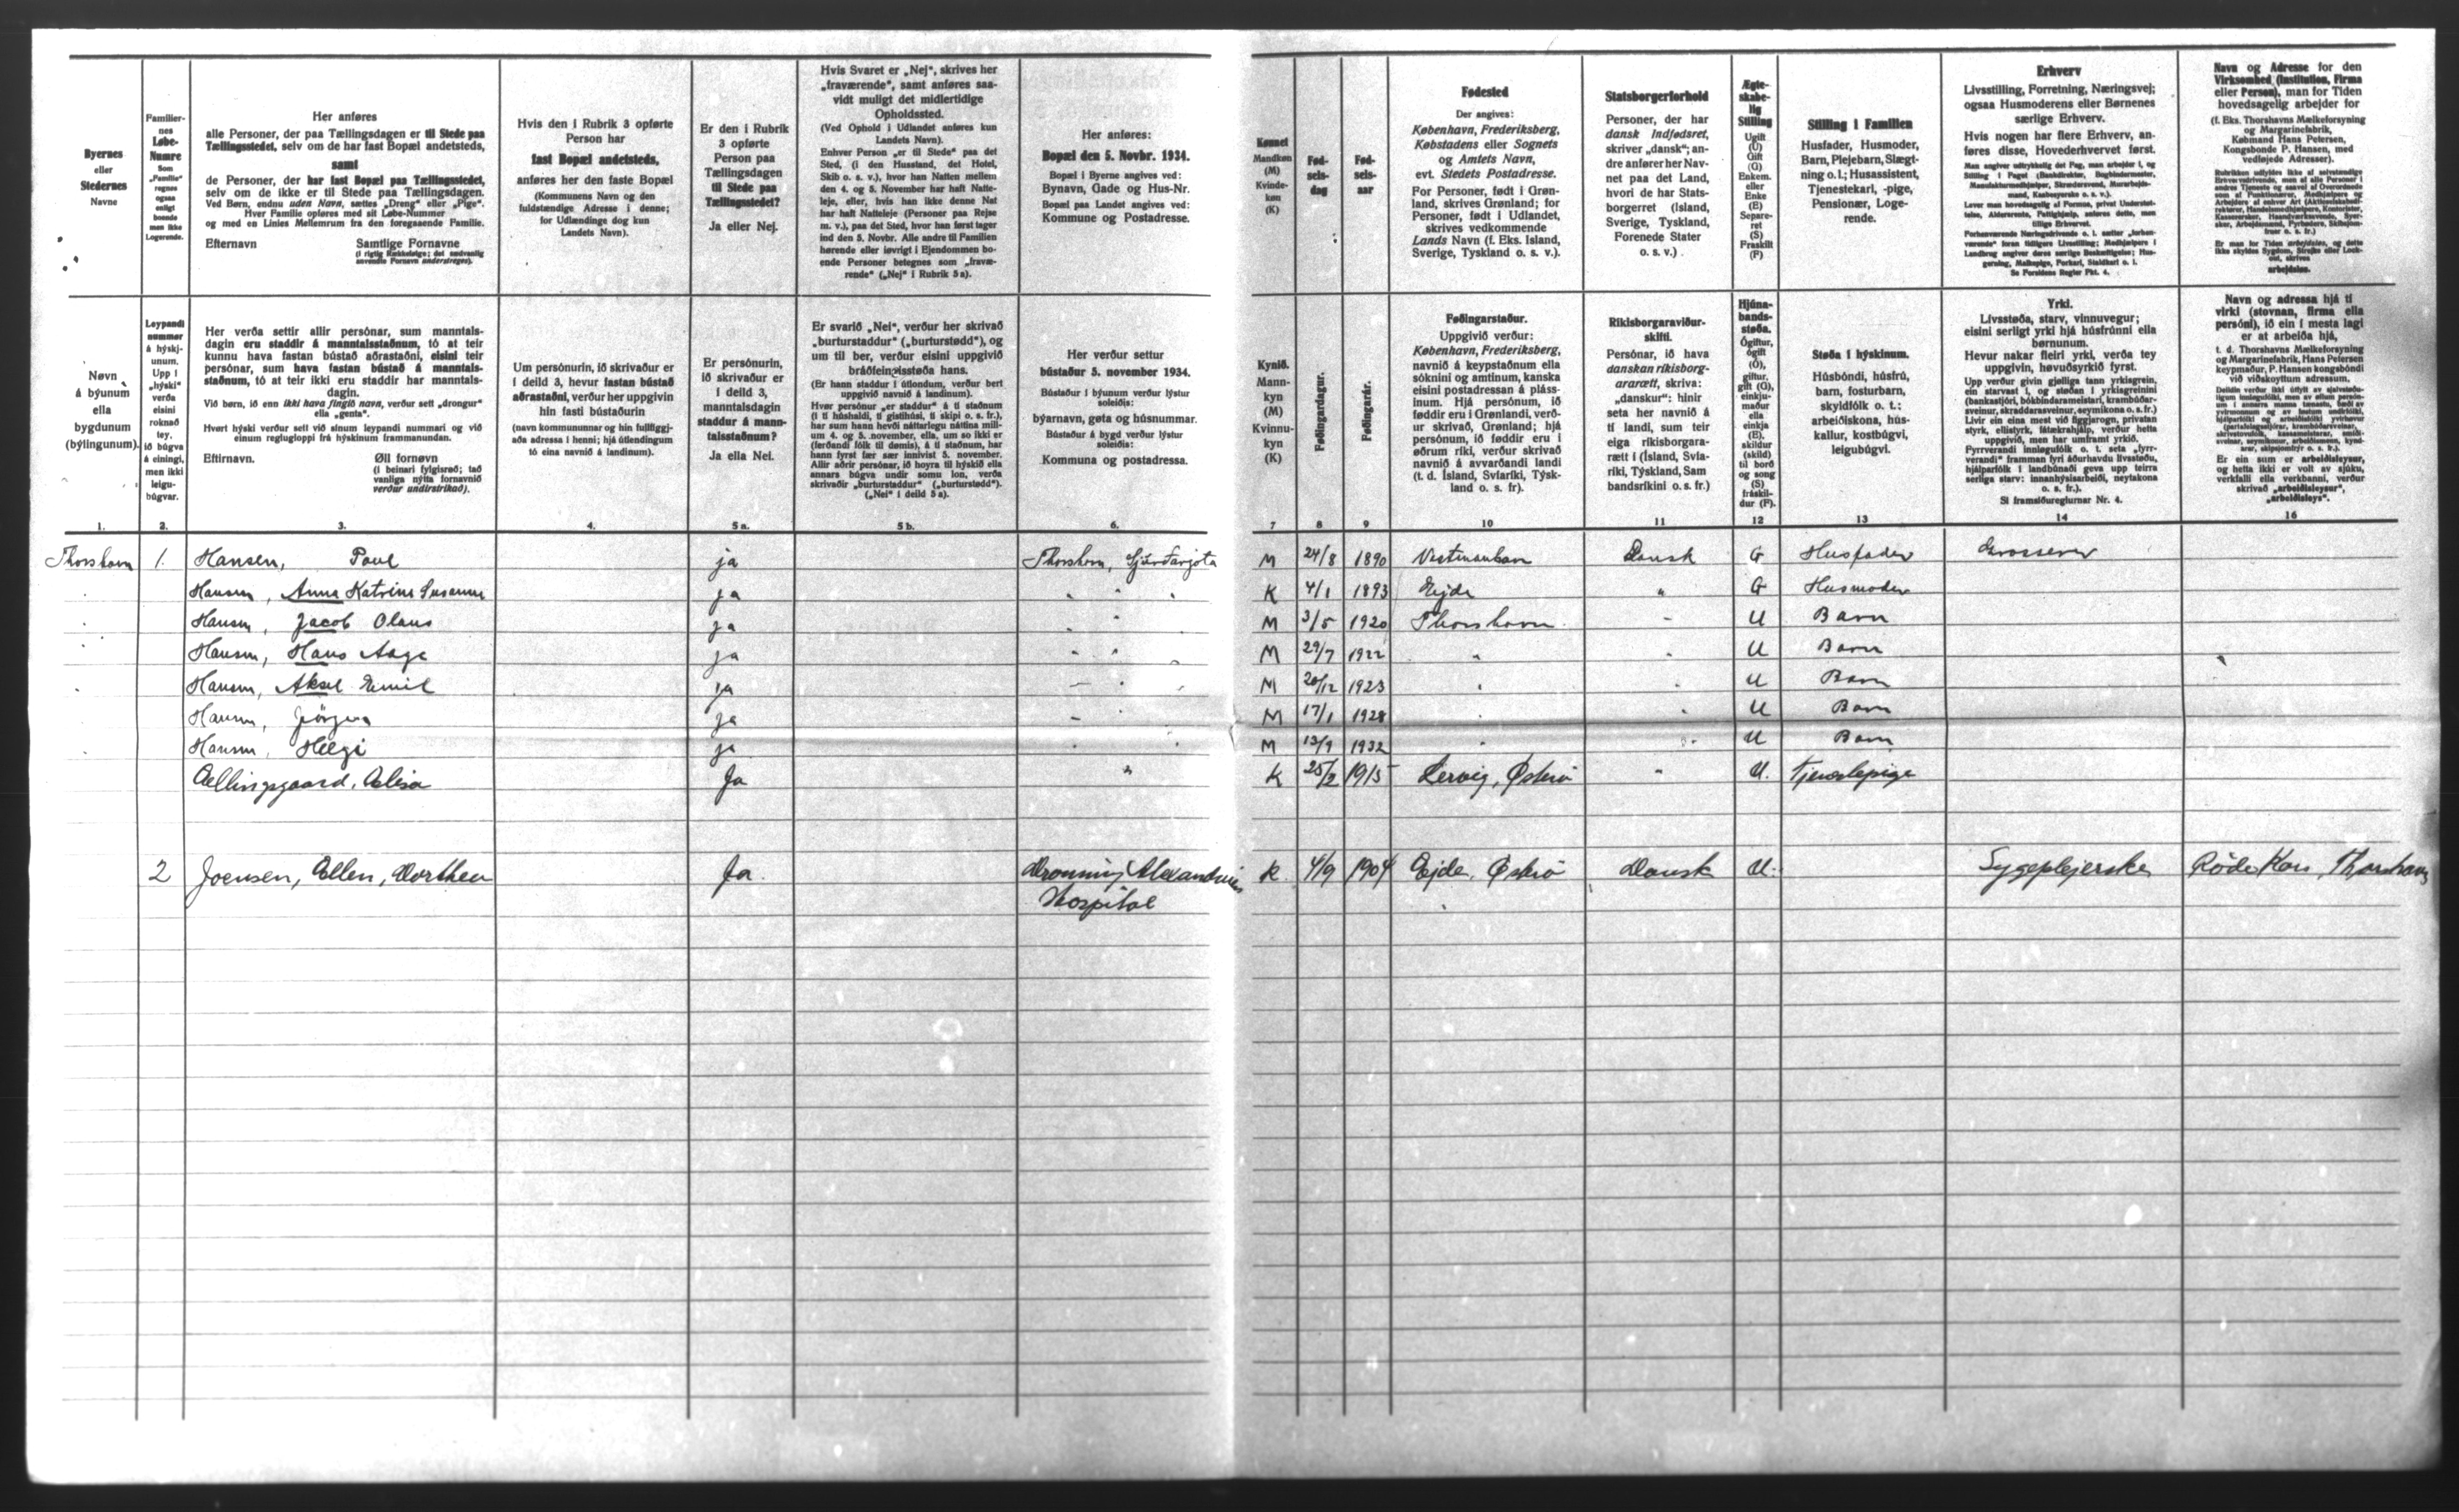 Byernes
eller
Stedernes
Navne
Familiernes
Løbe-
Numre
Som
„Familie"
regnes
ogsaa
enligt
boende
men ikke
Logerende.
Her anføres
alle Personer, der paa Tællingsdagen er til Stede paa
Tællingsstedet, selv om de har fast Bopæl andetsteds,
samt
de Personer, der har fast Bopæl paa Tællingsstedet,
selv om de ikke er til Stede paa Tællingsdagen.
Ved Børn, endnu uden Navn, sættes „Dreng" eller „Pige".
Hver Familie opføres med sit Løbe-Nummer
og med en Linies Mellemrum fra den foregaaende Familie.
Efternavn Samtlige Fornavne
(i rigtig Rækkefølge; det sædvanlig
anvendte Fornavn understreges).
Hvis den i Rubrik 3 opførte
Person har
fast Bopæl andetsteds,
anføres her den faste Bopæl
(Kommunens Navn og den
fuldstændige Adresse i denne;
for Udlændinge dog kun
Landets Navn).
Er den i Rubrik
3 opførte
Person paa
Tællingsdagen
til Stede paa
Tællingsstedet?
Ja eller Nej.
Hvis Svaret er „Nej", skrives her
„fraværende", samt anføres saa-
vidt muligt det midlertidige
Opholdssted.
(Ved Ophold i Udlandet anføres kun
Landets Navn).
Enhver Person „er til Stede" paa det
Sted, (i den Husstand, det Hotel,
Skib o. s. v.), hvor han Natten mellem
den 4. og 5. November har haft Natte-
leje, eller, hvis han ikke denne Nat
har haft Natteleje (Personer paa Rejse
m. v.), paa det Sted, hvor han først tager
ind den 5. Novbr. Alle andre til Familien
hørende eller iøvrigt i Ejendommen bo-
ende Personer betegnes som „fravæ-
rende" („Nej" i Rubrik 5a).
Her anføres:
Bopæl den 5. Novbr. 1934.
Bopæl i Byerne angives ved:
Bynavn, Gade og Hus-Nr.
Bopæl paa Landet angives ved:
Kommune og Postadresse.
Kønnet
Mandkøn
(M)
Kvinde-
køn
(K)
Fød-
sels-
dag
Fød-
sels-
aar
Fødested
Der angives:
København, Frederiksberg,
Købstadens eller Sognets
og Amtets Navn,
evt. Stedets Postadresse.
For Personer, født i Grøn-
land, skrives Grønland; for
Personer, født i Udlandet,
skrives vedkommende
Lands Navn (f. Eks. Island,
Sverige, Tyskland o. s. v.).
Statsborgerforhold
Personer, der har
dansk Indfødsret,
skriver „dansk"; an-
dre anfører her Nav-
net paa det Land,
hvori de har Stats-
borgerret (Island,
Sverige, Tyskland,
Forenede Stater
o. s. v.).
Ægte-
skabe-
lig
Stilling
Ugift
(U)
Gift
(G)
Enkem.
eller
Enke
(E)
Separe-
ret
(S)
Fraskilt
(F)
Stilling i Familien
Husfader, Husmoder,
Barn, Plejebarn, Slægt-
ning o. l.; Husassistent,
Tjenestekarl, -pige,
Pensionær, Loge-
rende.
Erhverv
Livsstilling, Forretning, Næringsvej;
ogsaa Husmoderens eller Børnenes
særlige Erhverv.
Hvis nogen har flere Erhverv, an-
føres disse, Hovederhvervet først.
Se Forsidens Regler Pkt. 4.
Navn og Adresse for den
Virksomhed (Institution, Firma
eller Person), man for Tiden
hovedsagelig arbejder for
(f. Eks. Thorshavns Mælkeforsyning
og Margarinefabrik,
Købmand Hans Petersen,
Kongsbonde P. Hansen, med
vedføjede Adresser).
Er man for Tiden arbejdsløs, og dette
ikke skyldes Sygdom, Strejke eller Lock-
out, skrives
arbejdsløs.
Nøvn
á býunum
ella
bygdunum
(býlingunum).
Leypandi
nummar
á hýskj-
unum.
Upp í
„hýski"
verða
eisini
roknað
tey,
ið búgva
á eini­ngi,
men ikki
leigu-
búgvar.
Her verða settir allir persónar, sum manntals-
dagin eru staddir á manntalsstaðnum, tó at teir
kunnu hava fastan bústað aðrastaðni, eisini teir
persónar, sum hava fastan bústað á manntals-
staðnum, tó at teir ikki eru staddir har manntals-
dagin.
Við børn, ið enn ikki hava fingið navn, verður sett „drongur"
ella „genta".
Hvørt hýski verður sett við sínum leypandi nummari og við
einum reglugloppi frá hýskinum frammanundan.
Eftirnavn. Øll fornøvn
(í beinari fylgisrøð; tað
vanliga nýtta fornavnið
verður undirstrikað).
Um persónurin, ið skrivaður er
í deild 3, hevur fastan bústað
aðrastaðni, verður her uppgivin
hin fasti bústaðurin
(navn kommununnar og hin fullíggj-
aða adressa í henni; hjá útlendingum
tó eina navnið á landinum).
Er persónurin,
ið skrivaður er
í deild 3,
manntalsdagin
staddur á mann-
talsstaðnum?
Ja ella Nei.
Er svarið „Nei", verður her skrivað
„burturstaddur" („burturstødd"), og
um til ber, verður eisini uppgivið
bráðfeingisstøða hans.
(Er hann staddur í útlondum, verður bert
uppgivið navnið á landinum).
Hvør persónur „er staddur" á tí staðnum
(í tí húshaldi, tí gistihúsi, tí skipi o. s. fr.),
har sum hann hevði náttarlegu náttina mill-
um 4. og 5. november, ella, um so ikki er
(ferðandi fólk til dømis), á tí staðnum, har
hann fyrst fær sær innivist 5. november.
Allir aðrir persónar, ið hoyra til hýskið ella
annars búgva undir somu lon, verða
skrivaðir „burturstaddur" („burturstødd").
(„Nei" í deild 5 a).
Her verður settur
bústaður 5. november 1934.
Bústaður í býunum verður lýstur
soleiðis:
býarnavn, gøta og húsnummar.
Bústaður á bygd verður lýstur
soleiðis:
Kommuna og postadressa.
Kynið.
Mann-
kyn
(M)
Kvinnu-
kyn
(K)
Føðingardagur.
Føðingarár.
Føðingarstaður.
Uppgivið verður:
København, Frederiksberg,
navnið á keypstaðnum ella
sóknini og amtinum, kanska
eisini postadressan á pláss-
inum. Hjá persónum, ið
føddir eru í Grønlandi, verð-
ur skrivað, Grønland; hjá
persónum, ið føddir eru í
øðrum ríki, verður skrivað
navnið á avvarðandi landi
(t. d. Ísland, Svfaríki, Týsk-
land o. s. fr).
Ríkisborgaraviður-
skifti.
Persónar, ið hava
danskan ríkisborg-
ararætt, skriva:
„danskur": hinir
seta her navnið á
tí landi, sum teir
eiga ríkisborgara-
rætt í (Ísland, Svía-
ríki, Týskland, Sam
bandsríkini o. s. fr.)
Hjúna-
bands-
støða.
Ógiftur,
ógift
(Ó),
giftur,
gift (G),
einkju-
maður
ella
einkja
(E),
skildur
(skild)
til borð
og song
(S)
fráskil-
dur (F).
Støða í hýskinum.
Húsbóndi, húsfrú,
barn, fosturbarn,
skyldfólk o. t.;
arbeiðiskona, hús-
kallur, kostbúgvi,
leigubúgvi.
Yrki.
Livsstøða, starv, vinnuvegur;
eisini serligt yrki hjá húsfrúnni ella
børnunum.
Hevur nakar fleiri yrki, verða tey
uppgivin, høvuðsyrkið fyrst.
Sí framsíðureglurnar Nr. 4.
Navn og adressa hjá tí
virki (stovnan, firma ella
persóni), ið ein í mesta lagi
er at arbeiða hjá,
t. d. Thorshavns Mælkeforsyning
og Margarinefabrik, Hans Petersen
keypmaður, P. Hansen kongsbóndi
við viðskoyttum adressum.
Er ein sum er arbeiðisleysur,
og hetta ikki er volt av sjúku,
verkfalli ella verkbanni, verður
skrivað „arbeiðisleysur",
„arbeiðisleys".
1. 2. 3. 4. 5a. 5b. 6. 7 8 9 10 11 12 13 14 16
Thorshavn 1. Hansen, Poul ja Thorshavn, M 24/8 1890 Vestmanhavn Dansk G Husfader Grosserer
Hansen, Anna Katrine Susanne ja " " " K 4/1 1893 Ejde " G Husmoder
Hansen, Jacob Olaus ja " " M 3/5 1920 Thorshavn " U Barn
Hansen, Hans Aage ja " " " M 29/7 1922 " " U Barn
Hansen, Aksel Emil ja " " " M 20/12 1923 " " U Barn
Hansen, Jörgen ja " " M 17/1 1928 " " U Barn
Hansen, Helgi ja " " M 13/9 1932 " " U Barn
Ellingsgaard, Elisa Ja " K 25/2 1915 Lervig, Østerø " U. Tjenestepige
2 Joensen, Ellen, Dorthea Ja. Dronning Alexandrines K 4/9 1904 Ejde, Østerø Dansk U. Sygeplejerske Røde Kors, Thorshavn
Hospital